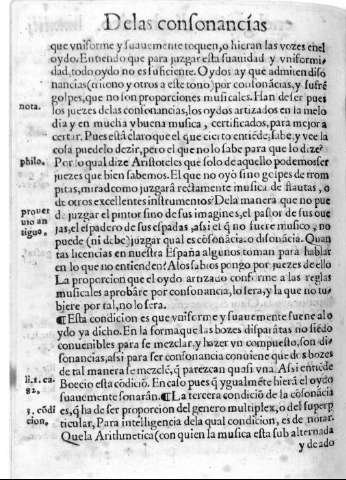 De las consonancías
que vniforme y suauemente toquen, o hieran las vozes en el
oydo. Entiendo que para juzgar esta suauidad y vniformi-
dad, todo oydo no es suficiente. Oydos ay que admiten diso
nancias (trueno y otros a este tono) por consonãcias, y sufrẽ
golpes, que no son proporciones musicales. Han de ser pues
nota.
los juezes delas consonancias, los oydos artizados en la melo
dia y en mucha y buena musica, certificados, para mejor a
certar. Pues está claro que el que cierto entiẽde, sabe, y vee la
cosa puede lo dezir, pero el que no lo sabe para que lo dize?
philo.
Por lo qual dize Aristoteles que solo de aquello podemos ser
juezes que bien sabemos. El que no oyò sino golpes de trom
pitas, mirad como juzgarà rectamente musica de flautas, o
de otros excellentes instrumentos? Dela manera que no pue
prouer
de juzgar el pintor sino de sus imagines, el pastor de sus oue
uio an
jas, el espadero de sus espadas, assi el q̃ no fuere musico, no
tiguo.
puede (ni debe) juzgar qual es cõsonãcia. o disonãcia. Quan
tas licencias en nuestra España algunos toman para hablar
en lo que no entienden? A los sabios pongo por juezes de ello
La proporcion que el oydo artizado conforme a las reglas
musicales aprobàre por consonancia, lo sera, y la que no tu-
biere por tal, no lo sera.
¶ Esta condicion es que vniforme y suauemente suene al o
ydo ya dicho. En la forma que las bozes disparàtas no siẽdo
conuenibles para se mezclar, y hazer vn compuesto, son di-
sonancias, assi para ser consonancia conuiene que dos bozes
de tal manera se mezclẽ, q̃ parezcan quasi vna. Assi entiẽde
li.1.ca.
Boecio esta cõdiciõ. En caso pues q̃ ygualmẽte hierã el oydo
suauemente sonaràn. ¶ La tercera condiciõ de la cõsonãcia
3. cõdi
es, q̃ ha de ser proporcion del genero multiplex, o del superp
cion.
ticular, Para intelligencia dela qual condicion, es de notar.
Que la Arithmetica (con quien la musica esta sub alternada
y de ado